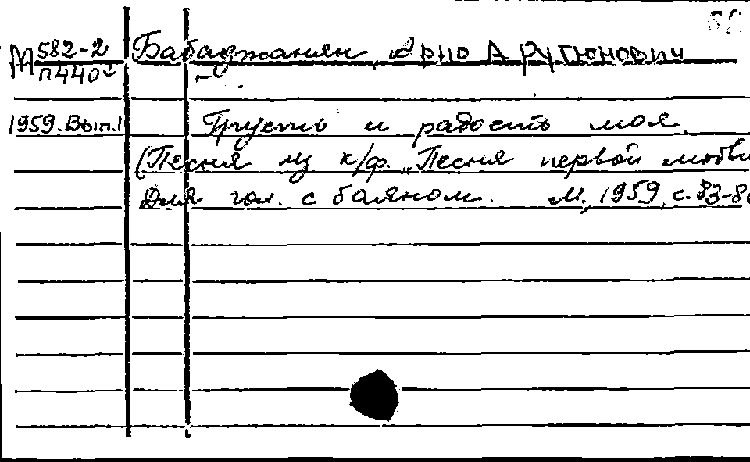 М 582-2 Бабаджанян, Арно Арутюнович
П440
1959. Вып.1 Грусть и радость моя.
(Песня из к/ф. „Песня первой любви
Для гол. с баяном. М., 1959, с. 83-8